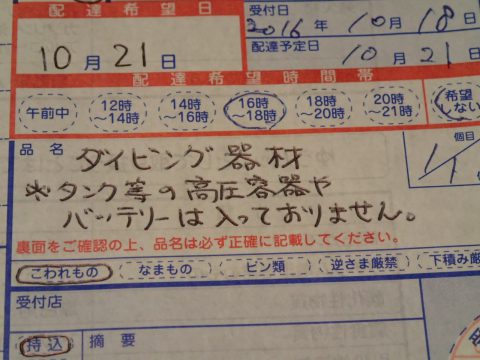 配達希望日
受付日
2016年10月18日
10月21日
配達予定日
10月21日
配達希望時間帯
午前中
12時～14時
14時～16時
16時～18時
18時～20時
20時～21時
希望しない
品名
個目
ダイビング器材
※タンク等の高圧容器や
バッテリーは入っておりません。
裏面をご確認の上、品名は必ず正確に記載してください。
こわれもの
なまもの
ビン類
逆さま厳禁
下積み厳
受付店
持込
摘要